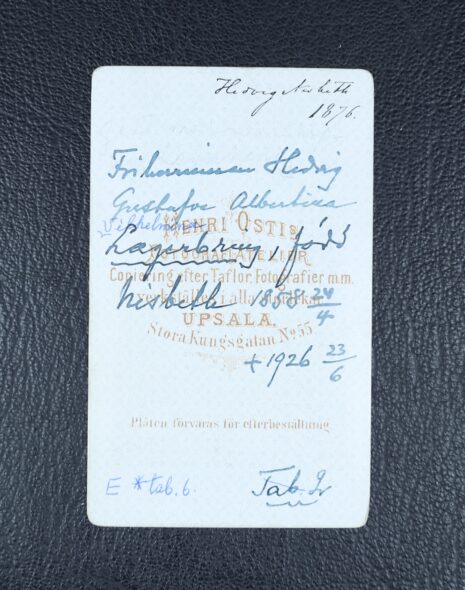 Hedvig Nisbeth
1876.
Friherrinnan Hedvig
Gustafva Albertina
Vilhelmina
HENRI OSTI'S
Lagerbring, född
FOTOGRAFI-ATELIER
Copiering efter Taflor, Fotografier m.m.
verkställes i alla storlekar
Nisbeth 1858 24/4
UPSALA.
Stora Kungsgatan No 55
+ 1926 23/6
Plåten förvaras för efterbeställning
E * tab. 6.
Tab. 9